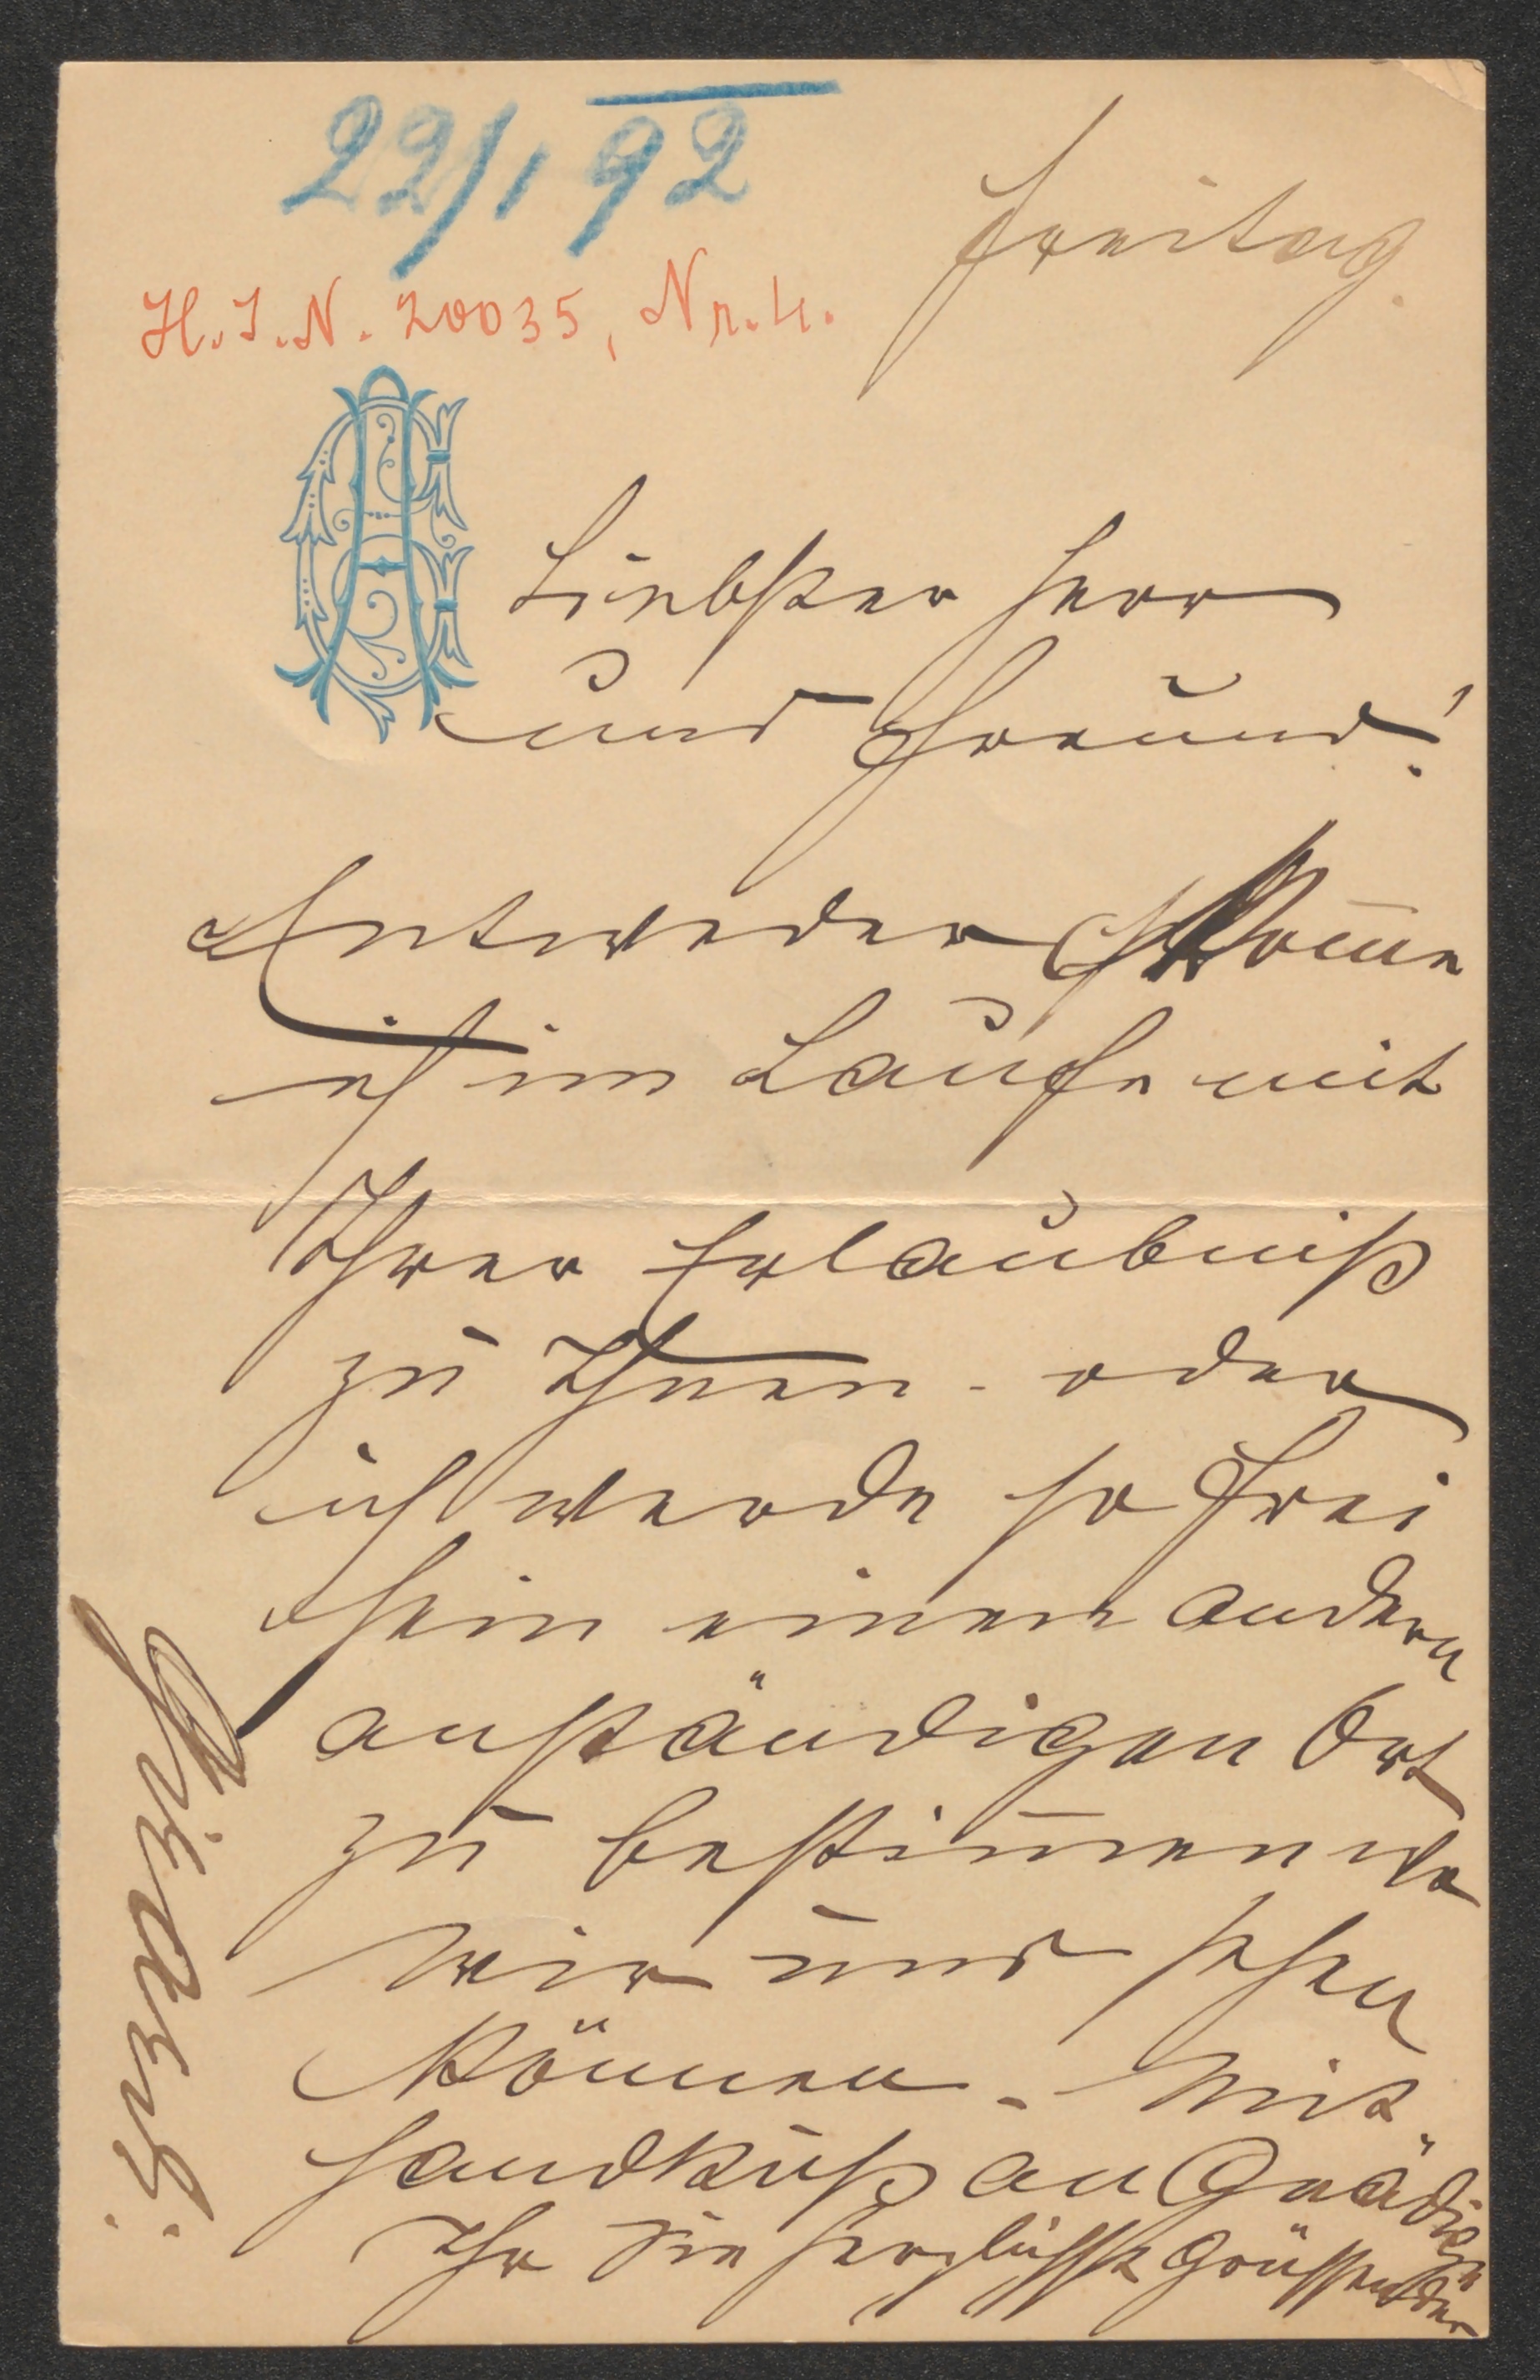 22/1 92
Freitag.
H.I.N. 20035, Nr. 4.
Liebster Herr
und Freund!
Entweder komme
ich im Laufe mit
Ihrer Erlaubniß
zu Ihnen - oder
ich werde so frei
sein einen andern
anständigen Ort
zu bestimmen wo
wir uns sehen
können. - Mit
Handkuß an Gnädige
Ihr Sie herzlichst grüssender
Girardi.